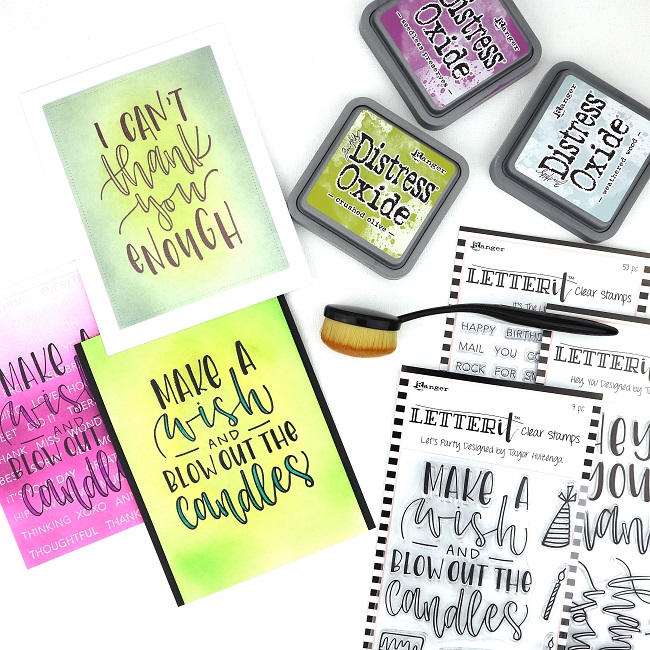 I CAN'T
thank
you
ENOUGH
Ranger
Distress
Oxide
- seedless preserves -
Ranger
Distress
Oxide
- crushed olive -
Ranger
Distress
Oxide
- weathered wood -
MAKE A
wish
AND
BLOW OUT THE
candles
MAKE A
wish
AND
BLOW OUT THE
candles
THANK MISS WONDE
THINKING XOXO AND
THOUGHTFUL THANK
Ranger
53 pc
LETTERit™ Clear Stamps
It's The
HAPPY BIRTHD
MAIL YOU
ROCK FOR
LETTERit™ Clear Stamps
Hey, You Designed by
HEY
YOU
Ranger
9 pc
LETTERit™ Clear Stamps
Let's Party Designed by Taylor Huizenga
MAKE A
wish
AND
BLOW OUT THE
candles